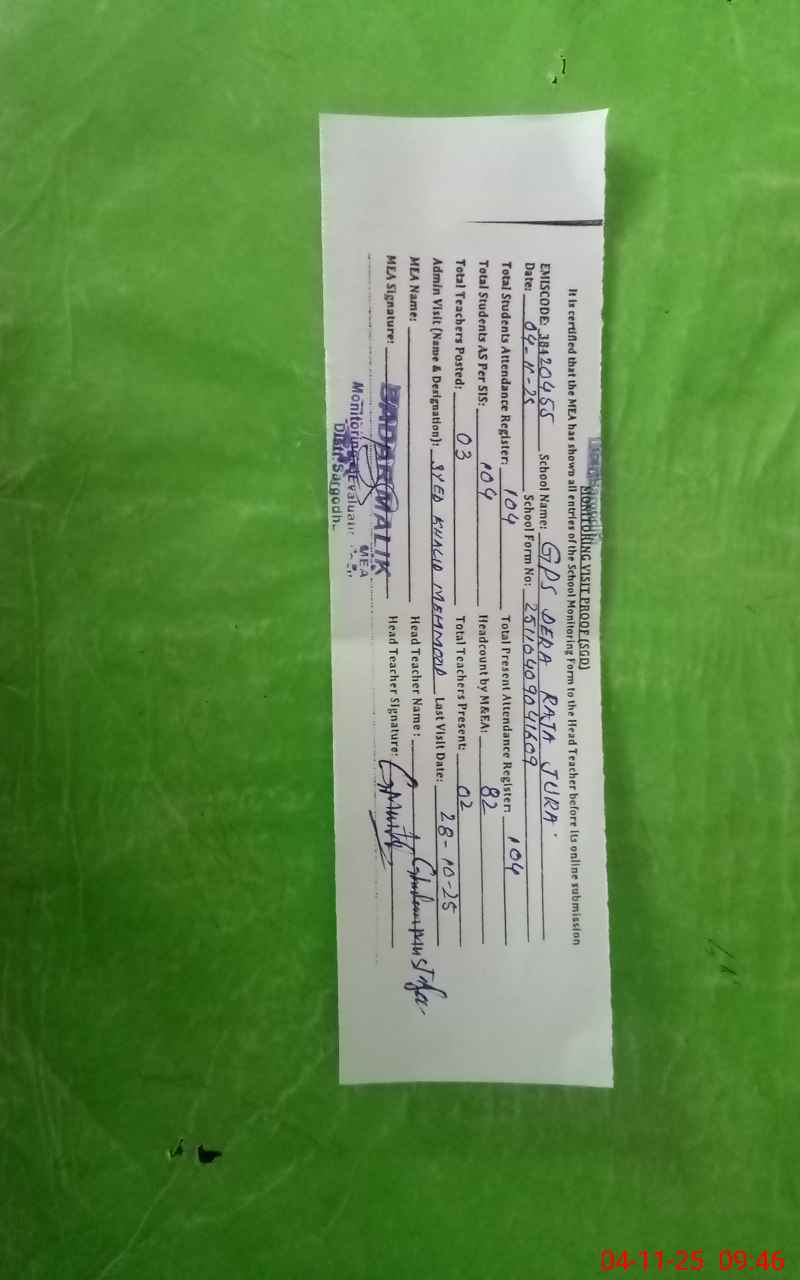 MONITORING VISIT PROOF (SGD)
It is certified that the MEA has shown all entries of the School Monitoring Form to the Head Teacher before its online submission
EMISCODE: 38420455 School Name: GPS DERA RAJA JURA
Date: 04-11-25 School Form No: 25110409041609
Total Students Attendance Register: 104 Total Present Attendance Register: 104
Total Students AS Per SIS: 104 Headcount by M&EA: 82
Total Teachers Posted: 03 Total Teachers Present: 02
Admin Visit (Name & Designation): SYED KHALID MEHMOOD Last Visit Date: 28-10-25
MEA Name: Head Teacher Name: Ghulam Mustafa
MEA Signature: BADAR MALIK Head Teacher Signature:
MEA
Monitoring
Distt. Sargodh
04-11-25 09:46